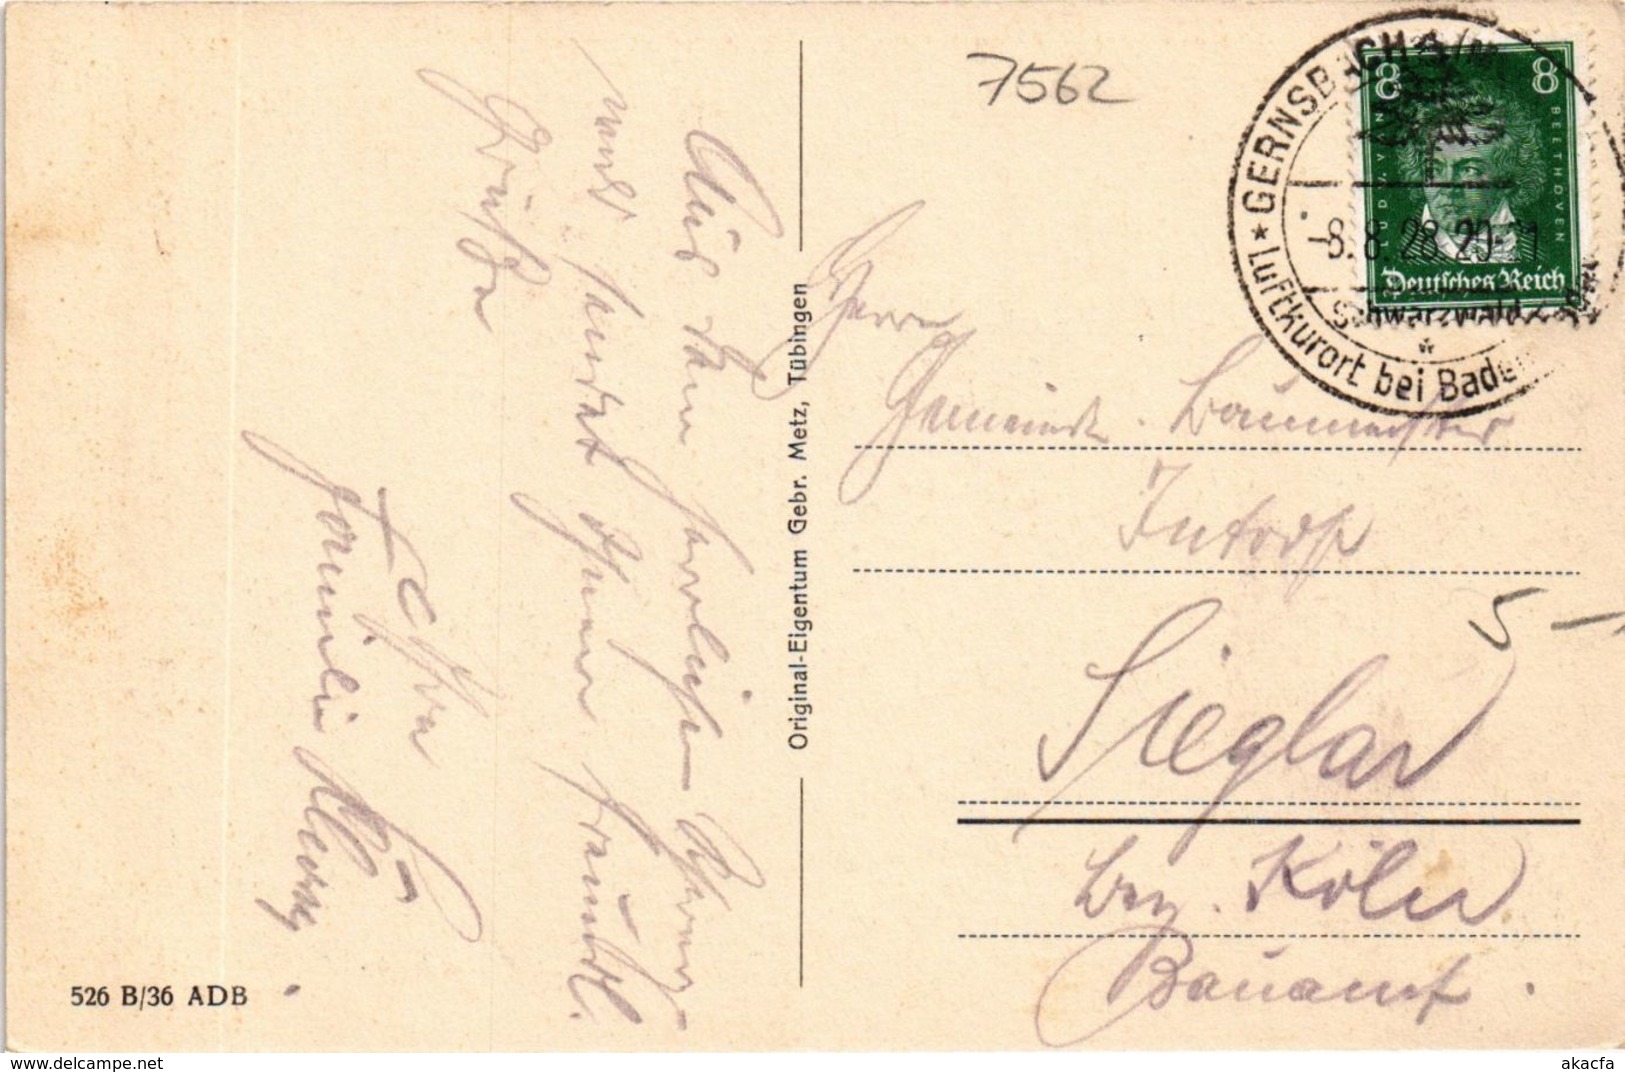 7562
GERNSBACH
* Luftkurort bei Baden
-8.8.28.20-21
Schwarzwald
8 8
BEETHOVEN
Deutsches Reich
Aus dem herrlichen Schwarz-
wald sendet Ihnen freundl.
Grüße
Familie
Original-Eigentum Gebr. Metz, Tübingen
Herrn
Gemeinde-Baumeister
Sieglar
5 -
bez. Köln
Bauamt.
526 B/36 ADB
www.delcampe.net
akacfa